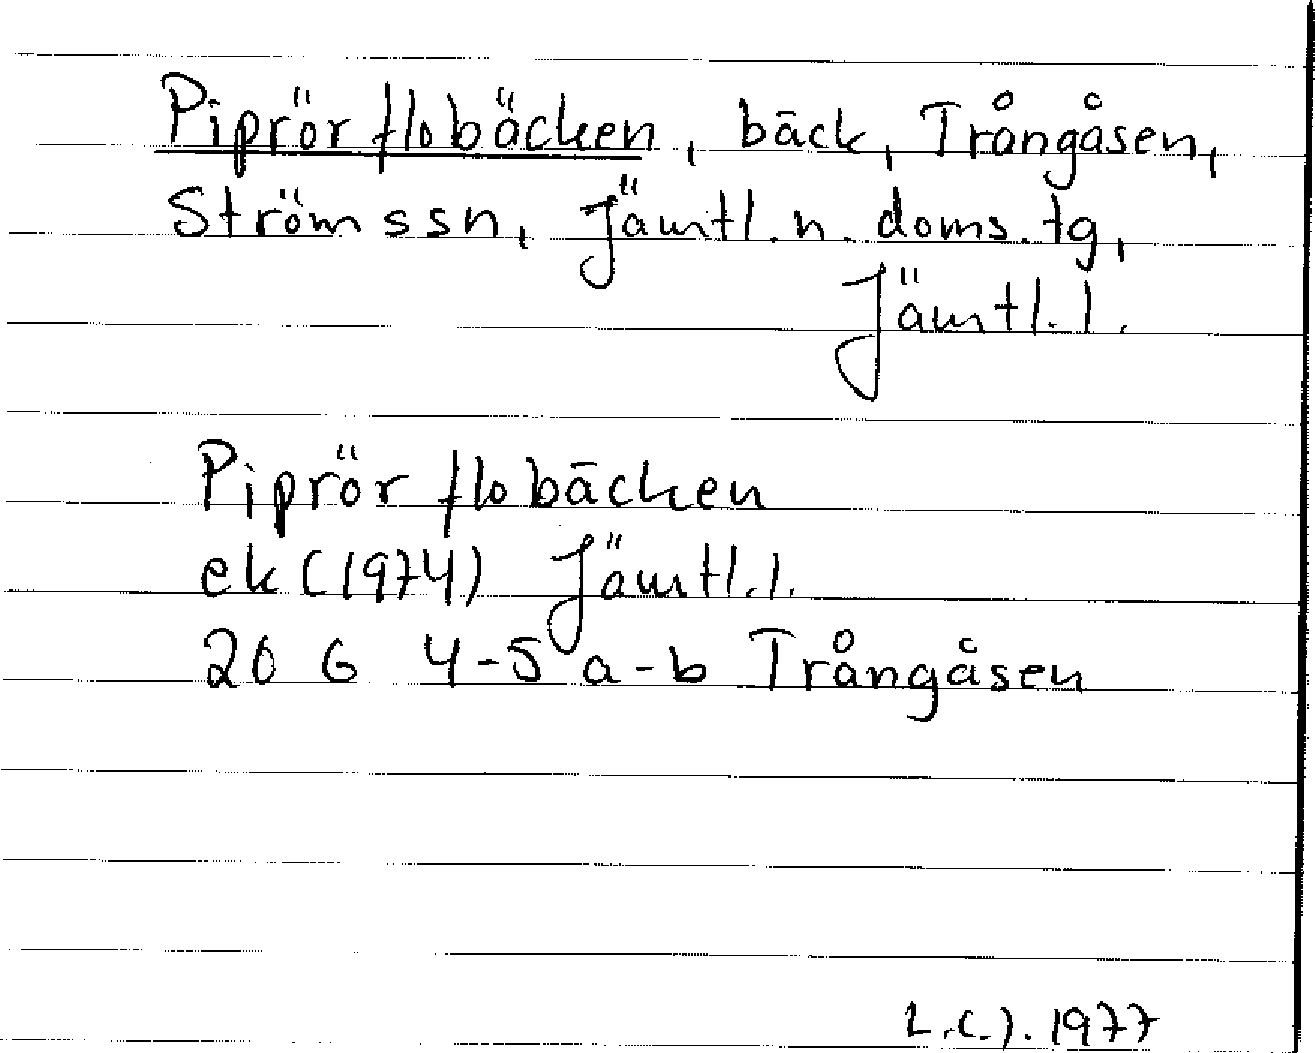 Pipрörflobäcken, bäck, Trångåsen,
Ströms sn, Jämtl. n. doms. tg,
Jämtl. l.
Piprörflobäcken
ek (1974) Jämtl. l.
20 G 4-5 a-b Trångåsen
L.C.J. 1977